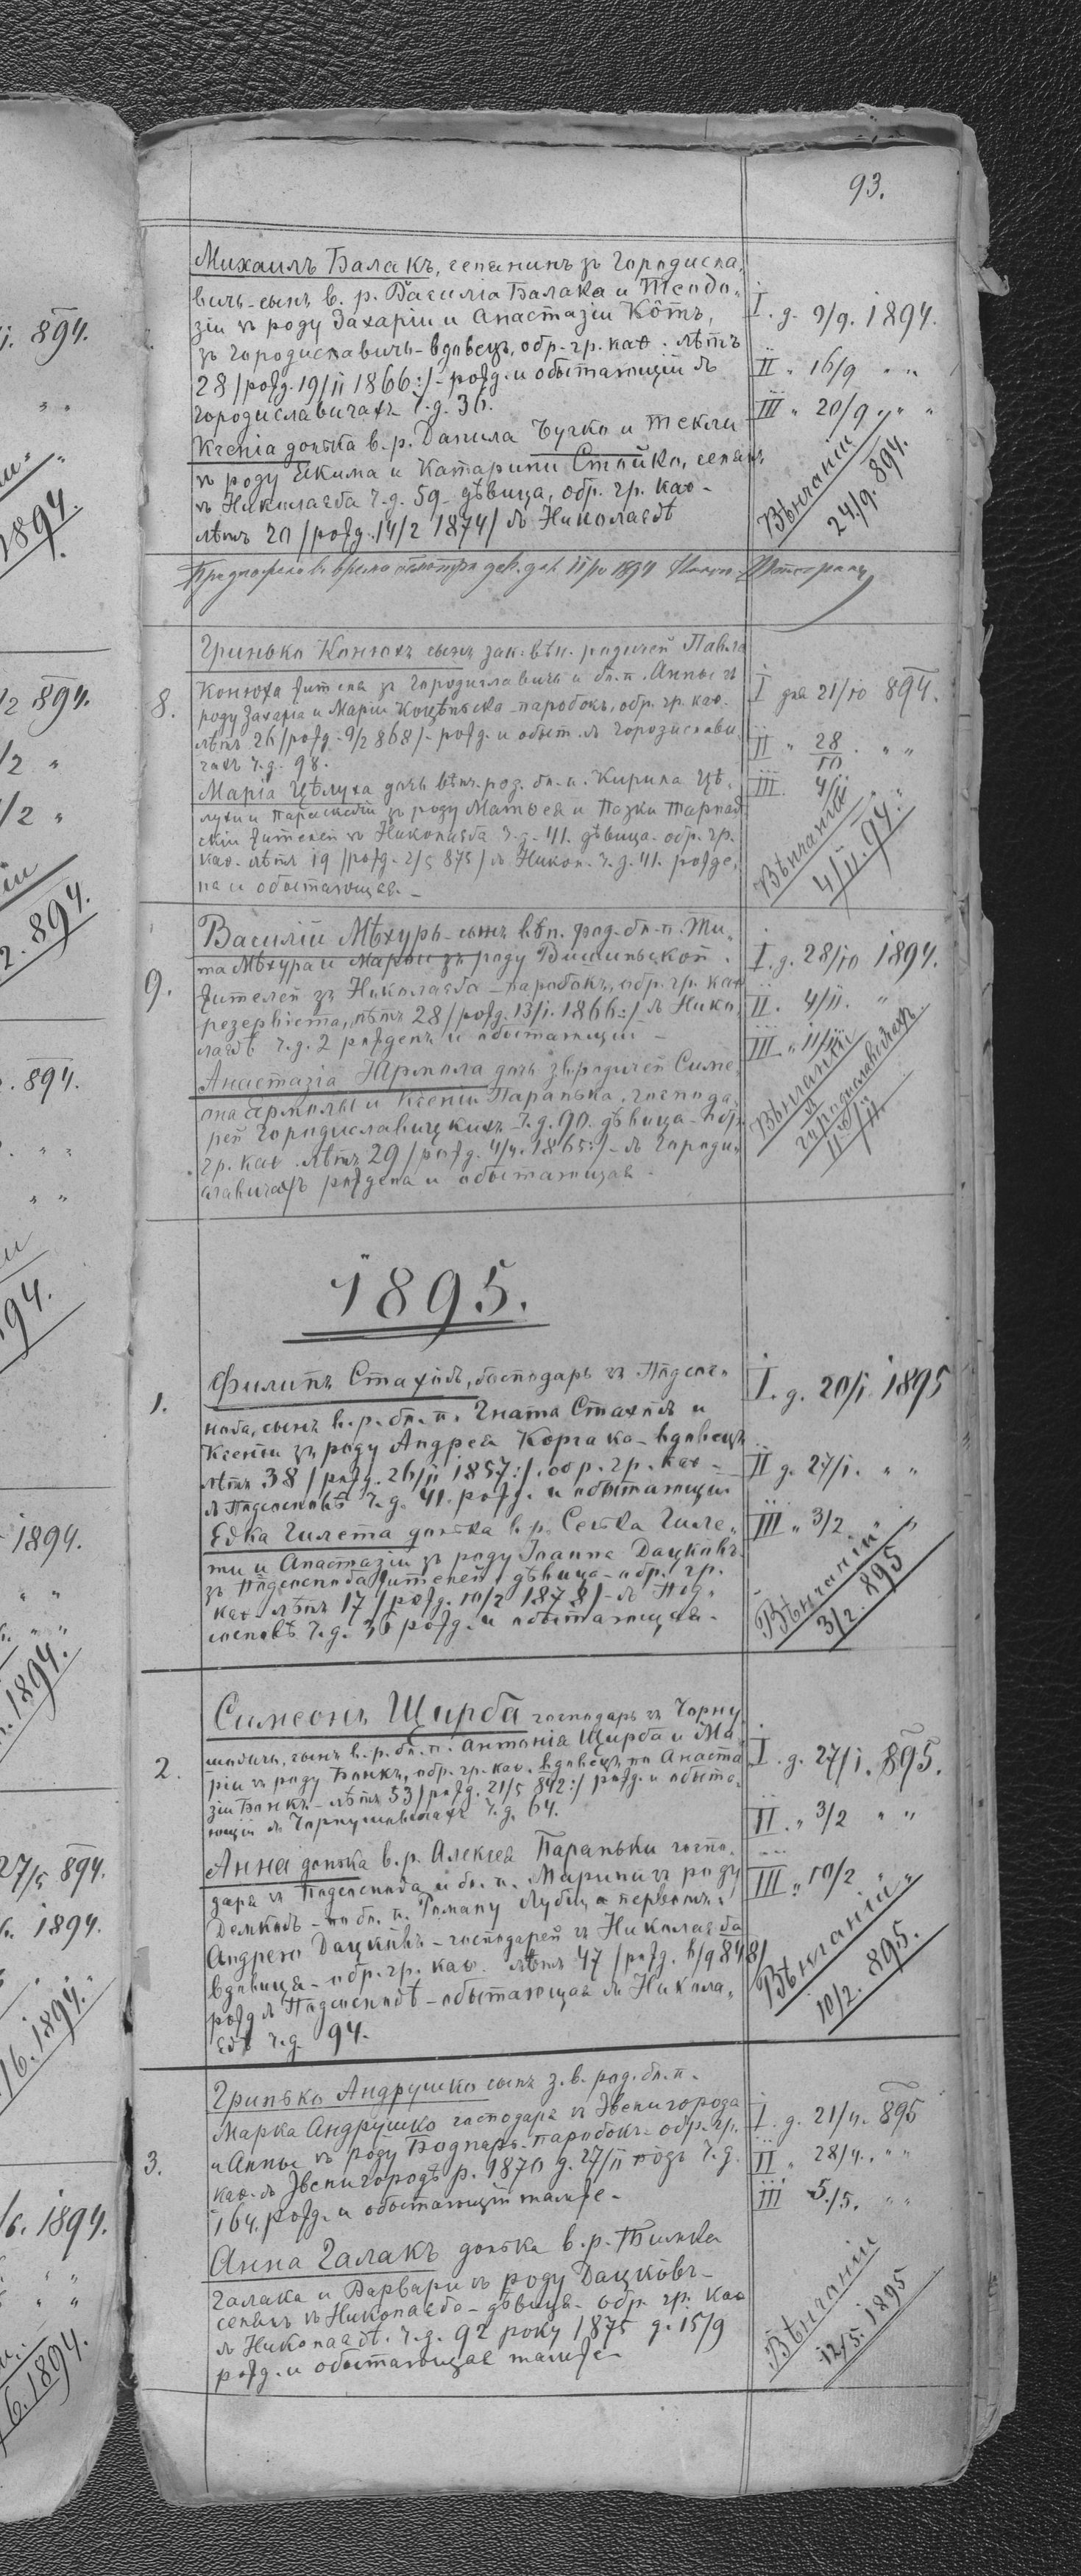 93.
Михаилъ Балакъ, селянинъ зъ Городисла-
вичь-сынъ в. р. Василія Балака и Теодо-
зіи зъ роду Захаріи и Анастазіи Кôтъ,
зъ Городиславичь-вдовецъ, обр. гр. каѳ. лѣтъ
28 /рожд. 19/II 1866:/- рожд. и обытающій въ
Городиславичахъ ч. д. 36.
Ксенія донька в. р. Данила Бучко и Текли
зъ роду Якима и Катарини Стойко, селянъ
зъ Николаева ч. д. 59 дѣвица, обр. гр. каѳ.
лѣтъ 20 /рожд. 14/2 1874/ въ Николаевѣ
I. д. 9/9. 1894.
II " 16/9 " "
III " 20/9 " "
Вѣнчаніи
24/9. 894.
1894
8.
Гринько Конюхъ сынъ зак. вѣн. родичей Павла
Конюха жителя зъ Городиславичь и бл. п. Анны зъ
роду Захарія и Маріи Коцѣльска - паробокъ, обр. гр. каѳ.
лѣтъ 26 /рожд. 9/2 868/- рожд. и обыт. въ Городислави-
чахъ ч. д. 98.
Марія Цѣлуха дочь вѣнч. род. бл. п. Кирила Цѣ-
лухи и Параскевіи зъ роду Матѳея и Пазки Тарнав-
скіи жителей зъ Николаева ч. д. 41. дѣвица обр. гр.
каѳ. лѣтъ 19 /рожд. 2/5 875/ въ Никол. ч. д. 41. рожде-
на и обытающая.-
I дня 21/10 894.
II " 28/10 " "
III. 4/11 " "
Вѣнчаніи
4/11. 94.
9.
Василій Мѣхуръ-сынъ вѣн. род. бл. п. Ти-
та Мѣхура и Маріи зъ роду
жителей зъ Николаева - паробокъ, обр. гр. каѳ
резервіста, лѣтъ 28 /рожд. 13/I. 1866:/ въ Нико-
лаевѣ ч. д. 2 рожденъ и обытающій -
Анастазія Ярмола дочь зъ родичей Симе-
она Ярмолы и Ксеніи Паранька, господа-
рей Городиславицкихъ - ч. д. 90. дѣвица - обр.
гр. каѳ. лѣтъ 29 /рожд. 4/4. 1865:/ - въ Городи-
славичахъ рождена и обытающая.
I. д. 28/10 1894.
II. 4/11. "
III " 11/11
Вѣнчаніи
въ
Городиславичахъ
11/11.
1895.
1.
Филипъ Стахôвъ, господарь зъ Пôдсос-
нова, сынъ в. р. бл. п. Игната Стахôвъ и
Ксеніи зъ роду Андрея Корчака - вдовецъ
лѣтъ 38 /рожд. 26/II 1857:/. обр. гр. каѳ. -
въ Пôдсосновѣ ч. д. 41. рожд. и обытающій
Евка Гилета донька в. р. Сенка Гиле-
ти и Анастазіи зъ роду Іоанна Дацкôвъ
зъ Пôдсоснова жителей, дѣвица - обр. гр.
каѳ. лѣтъ 17 /рожд. 10/2 1878/ - въ Под-
сосновѣ ч. д. 36 рожд. и обытающая.
I. д. 20/I. 1895
II д. 27/I. " "
III " 3/2 " "
Вѣнчаніи
3/2. 895
2.
Симеонъ Щирба господарь зъ Чорну-
шовичь, сынъ в. р. бл. п. Антонія Щирба и Ма-
ріи зъ роду Бонкъ, обр. гр. каѳ. вдовецъ по Анаста-
зіи Бонкъ - лѣтъ 53 /рожд. 21/5 842:/ рожд. и обыта-
ющій въ Чорнушовичахъ ч. д. 64.
Анна донька в. р. Алексея Параньки госпо-
даря зъ Пôдсоснова и бл. п. Марини зъ роду
Демкôвъ - по бл. п. Роману
Андрею Дацкôвъ - господарей зъ Николаева
вдовица - обр. гр. каѳ. лѣтъ 47 /рожд. 848/
рожд въ Пôдсосновѣ - обытающая въ Никола-
евѣ ч. д. 94.
I. д. 27/I. 895.
II. " 3/2 " "
III " 10/2 " "
Вѣнчаніи
10/2. 895.
3.
Гринько Андрушко сынъ з. в. род. бл. п.
Марка Андрушко господаря зъ Звенигорода
и Анны зъ роду Боднаръ - паробокъ обр. гр.
каѳ. въ Звенигородѣ р. 1870 д. 27/II подъ ч. д.
164. рожд. и обытающій тамже -
Анна Галакъ донька в. р. Тимка
Галака и Варвари зъ роду Дацкôвъ -
селянъ зъ Николаева - дѣвица - обр. гр. каѳ
въ Николаевѣ. ч. д. 92 року 1875 д. 15/9
рожд. и обытающая тамже -
I. д. 21/4. 895
II " 28/4. " "
III 5./5. " "
Вѣнчаніи
12/5. 1895